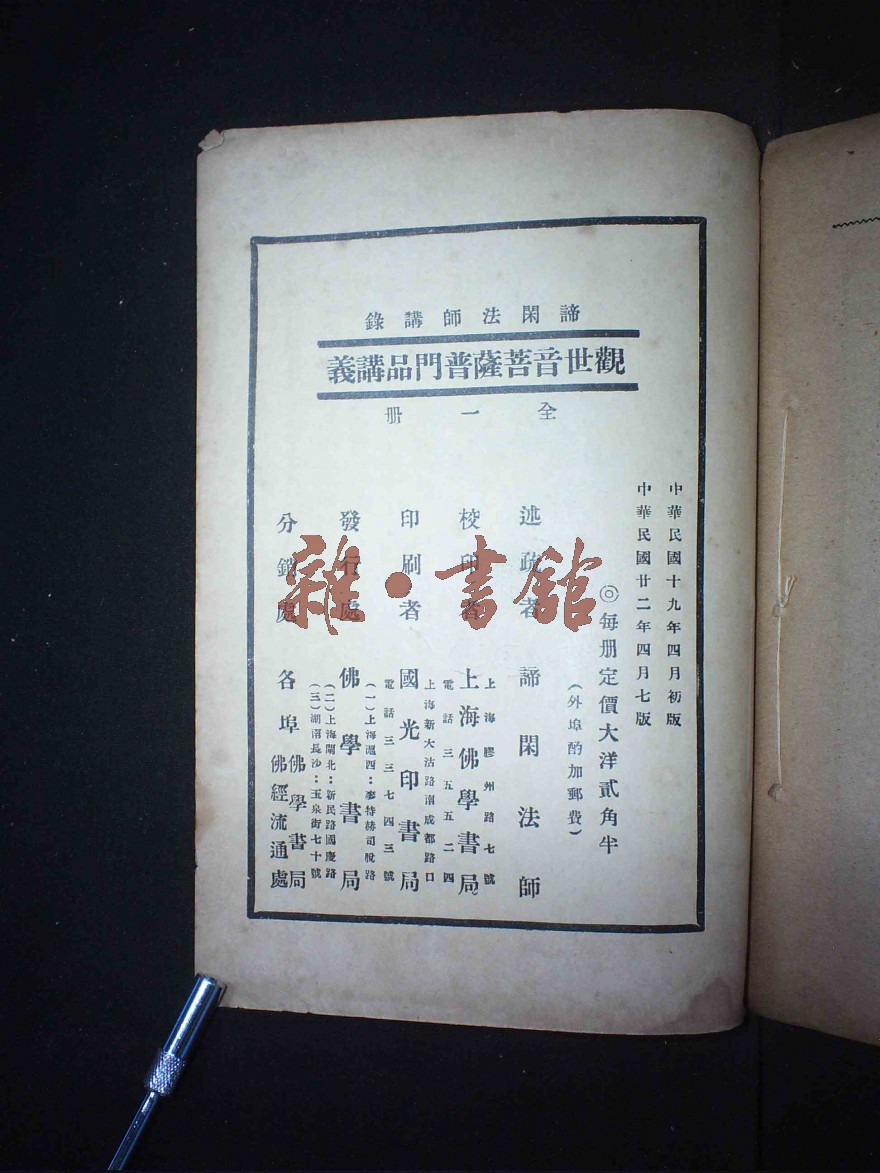 諦閑法師講錄
觀世音菩薩普門品講義
全一册
中華民國十九年四月初版
中華民國廿二年四月七版
◎每册定價大洋貳角半
(外埠酌加郵費)
述疏者 諦閑法師
校印者 上海佛學書局
上海膠州路七號
電話三五五二四
印刷者 國光印書局
上海新大沽路南成都路口
電話三三七四三號
發行處 佛學書局
(一)上海滬西:麥特赫司脫路
(二)上海閘北:新民路國慶路
(三)湖南長沙:玉泉街七十號
分銷處 各埠
佛學書局
佛經流通處
雜·書館